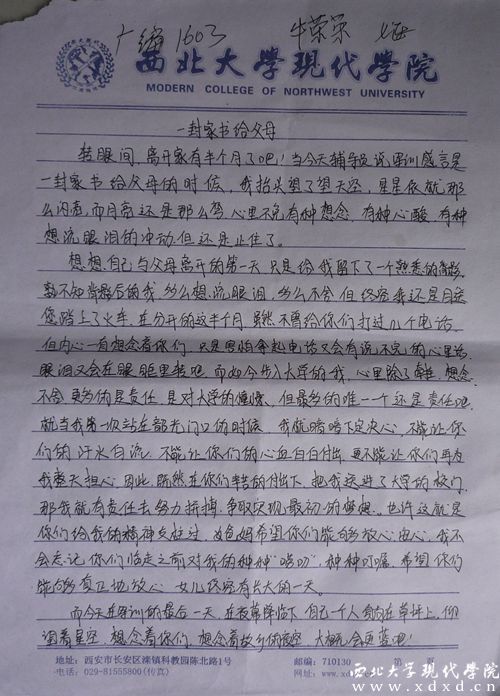 广编1603 牛荣荣
西北大学现代学院
MODERN COLLEGE OF NORTHWEST UNIVERSITY
一封家书给父母
转眼间,离开家有半个月了吧!当今天辅导员说军训感言是
一封家书给父母的时候,我抬头望了望天空,星星依就那
么闪着,而月亮还是那么弯,心里不免有种想念,有种心酸,有种
想流眼泪的冲动但还是止住了。
想想自己与父母离开的第一天,只是给我留下了一个熟悉的背影,
孰不知背影后的我,多么想流眼泪,多么不舍,但终究我还是目送
您踏上了火车,在分开的这半个月,虽然不曾给你们打过几个电话,
但内心一直想念着你们,只是害怕拿起电话又会有说不完的心里话,
眼泪又会在眼眶里转吧,而如今步入大学的我,心里除了牵挂,想念
不舍,更多的是责任,是对大学的憧憬,但最多的唯一一个还是责任吧,
就当我第一次站在部光门口的时候,我就暗暗下定决心,不能让你
们的汗水白流,不能让你们的心血白白付出,更不能让你们再为
我整天担心,因此,既然在你们辛苦的付出下,把我送进了大学的校门,
那我就有责任去努力拼搏,争取实现最初的梦想,也许这就是
你们给我的精神支柱过,爸妈希望你们能够放心,由心,我不
会忘记你们临走之前对我的种种"唠叨",种种叮嘱,希望你们
能够真正地放心,女儿终究有长大的一天。
而今天在军训的最后一天,在夜幕降临下,自己一个人躺在草坪上,仰
望着星空,想念着你们,想念着故乡的夜空,大概会更蓝吧!
地址:西安市长安区滦镇科教园陈北路1号
邮编:710130
电话:029-81555800(传真)
网址:www.xdxd.cn
西北大学现代学院
www.xdxd.cn